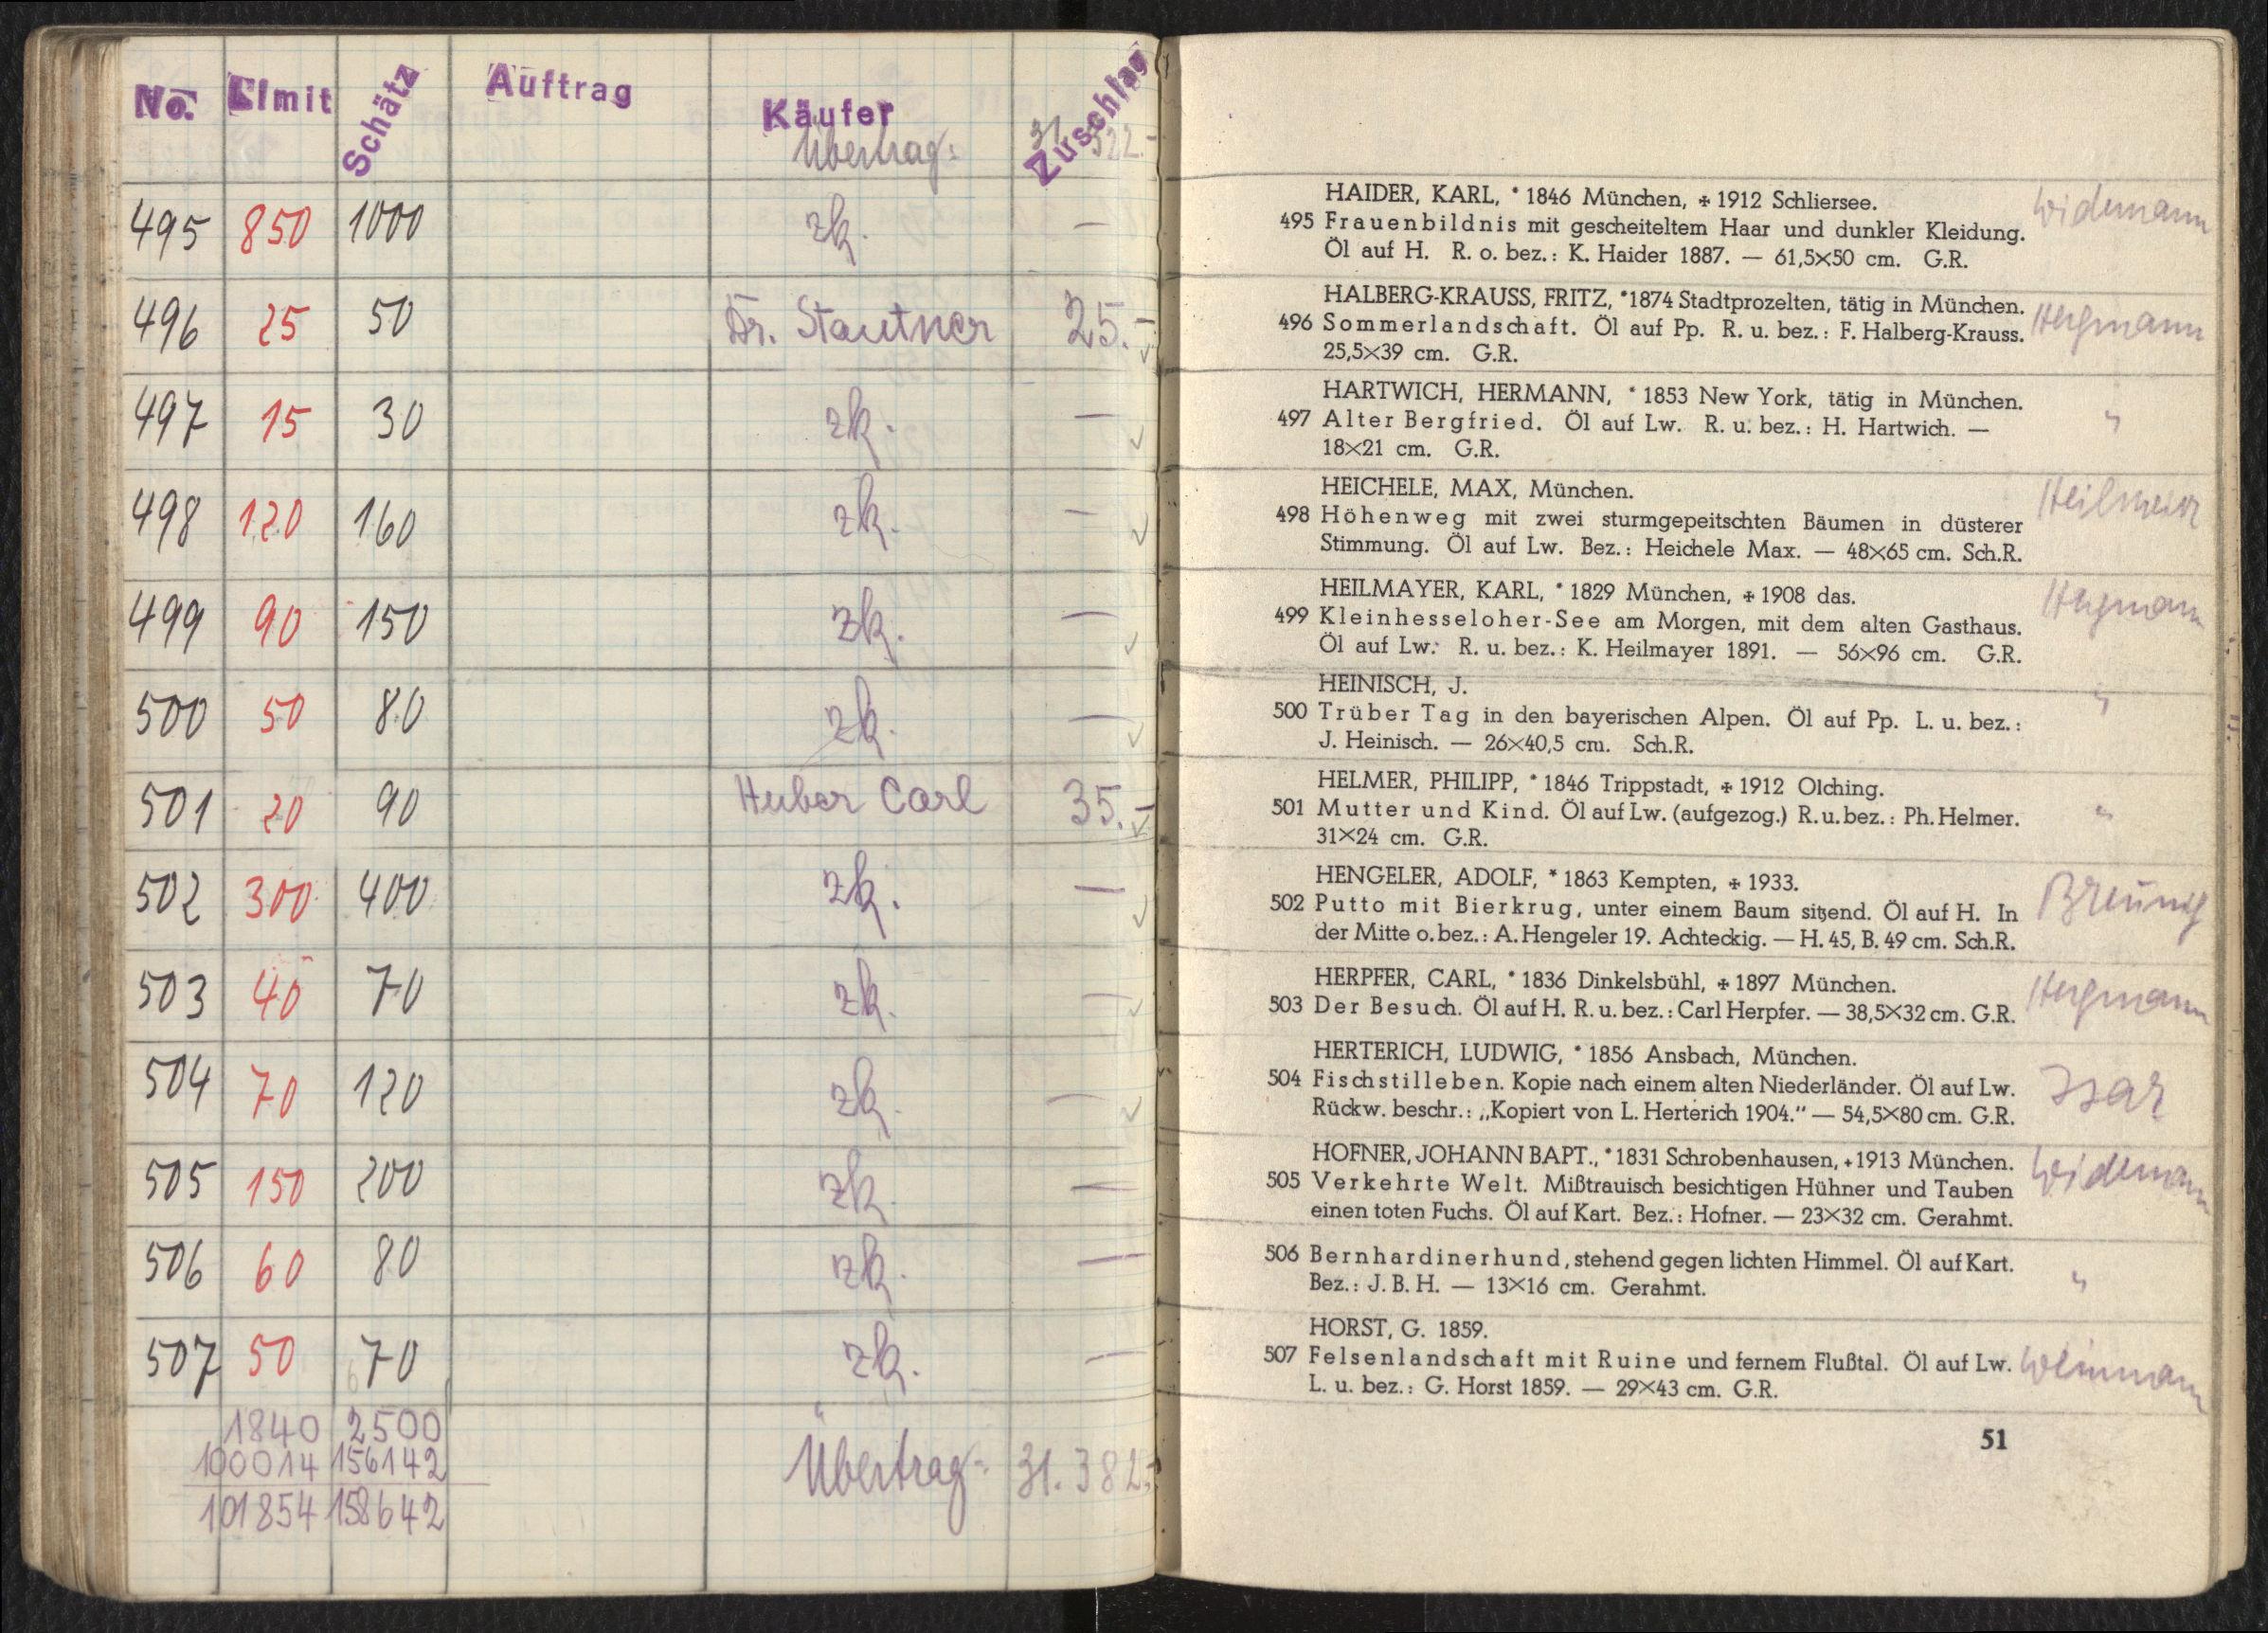 No. Limit Schätz Auftrag Käufer Zuschlag
Übertrag:
495 850 1000 zk. —
496 25 50 Dr. Stautner 25.-
497 15 30 zk. —
498 120 160 zk. —
499 90 150 zk. —
500 50 80 zk. —
501 20 90 Huber Carl 35.-
502 300 400 zk. —
503 40 70 zk. —
504 70 120 zk. —
505 150 200 zk. —
506 60 80 zk. —
507 50 70 zk. —
1840 2500
100014 156142
Übertrag: 31.382.-
101854 158642
HAIDER, KARL, * 1846 München, + 1912 Schliersee. Widemann
495 Frauenbildnis mit gescheiteltem Haar und dunkler Kleidung.
Öl auf H. R. o. bez.: K. Haider 1887. — 61,5×50 cm. G.R.
HALBERG-KRAUSS, FRITZ, *1874 Stadtprozelten, tätig in München.
496 Sommerlandschaft. Öl auf Pp. R. u. bez.: F. Halberg-Krauss.
25,5×39 cm. G.R.
HARTWICH, HERMANN, * 1853 New York, tätig in München.
497 Alter Bergfried. Öl auf Lw. R. u. bez.: H. Hartwich. — "
18×21 cm. G.R.
HEICHELE, MAX, München.
498 Höhenweg mit zwei sturmgepeitschten Bäumen in düsterer
Stimmung. Öl auf Lw. Bez.: Heichele Max. — 48×65 cm. Sch.R.
HEILMAYER, KARL, * 1829 München, + 1908 das.
499 Kleinhesseloher-See am Morgen, mit dem alten Gasthaus.
Öl auf Lw. R. u. bez.: K. Heilmayer 1891. — 56×96 cm. G.R.
HEINISCH, J. "
500 Trüber Tag in den bayerischen Alpen. Öl auf Pp. L. u. bez.:
J. Heinisch. — 26×40,5 cm. Sch.R.
HELMER, PHILIPP, * 1846 Trippstadt, + 1912 Olching.
501 Mutter und Kind. Öl auf Lw. (aufgezog.) R. u. bez.: Ph. Helmer. "
31×24 cm. G.R.
HENGELER, ADOLF, * 1863 Kempten, + 1933.
502 Putto mit Bierkrug, unter einem Baum sitzend. Öl auf H. In
der Mitte o. bez.: A. Hengeler 19. Achteckig. — H. 45, B. 49 cm. Sch.R.
HERPFER, CARL, * 1836 Dinkelsbühl, + 1897 München.
503 Der Besuch. Öl auf H. R. u. bez.: Carl Herpfer. — 38,5×32 cm. G.R.
HERTERICH, LUDWIG, * 1856 Ansbach, München.
504 Fischstilleben. Kopie nach einem alten Niederländer. Öl auf Lw. Isar
Rückw. beschr.: „Kopiert von L. Herterich 1904.“ — 54,5×80 cm. G.R.
HOFNER, JOHANN BAPT., * 1831 Schrobenhausen, + 1913 München. Widemann
505 Verkehrte Welt. Mißtrauisch besichtigen Hühner und Tauben
einen toten Fuchs. Öl auf Kart. Bez.: Hofner. — 23×32 cm. Gerahmt.
506 Bernhardinerhund, stehend gegen lichten Himmel. Öl auf Kart.
Bez.: J. B. H. — 13×16 cm. Gerahmt. "
HORST, G. 1859.
507 Felsenlandschaft mit Ruine und fernem Flußtal. Öl auf Lw. Weinmann
L. u. bez.: G. Horst 1859. — 29×43 cm. G.R.
51